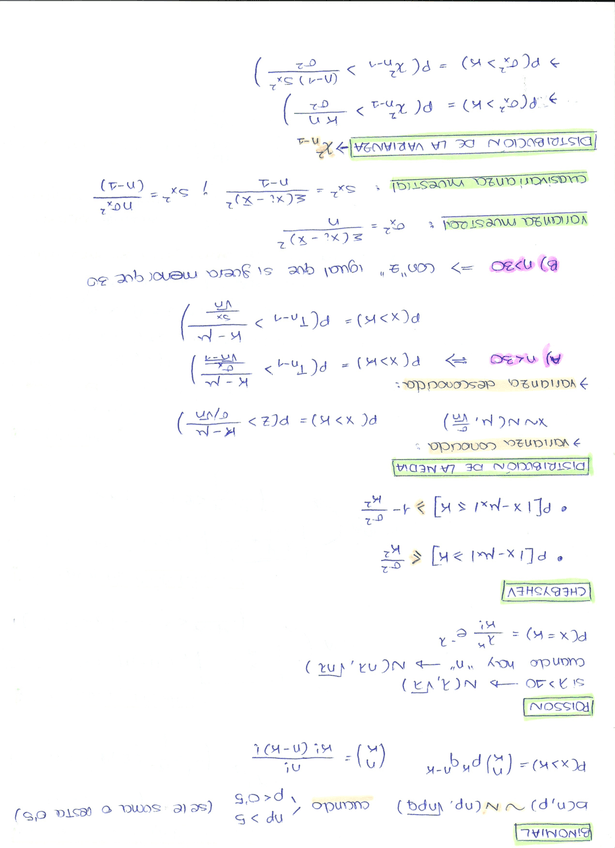 BINOMIAL
b(n,p) ~ N(np, √npq) cuando np > 5 (se le suma o resta 0,5)
p < 0,5
P(X>K) = (n K) p^K q^n-K (n K) = n! / K! (n-K)!
POISSON
si λ > 10 → N(λ, √λ)
cuando hay "n" → N(nλ, √nλ)
P(X=K) = λ^K / K! e^-λ
CHEBYSHEV
• P[|X-μx| ≥ K] ≤ σ² / K²
• P[|X-μx| ≤ K] ≥ 1 - σ² / K²
DISTRIBUCIÓN DE LA MEDIA
→ varianza conocida :
X~N(μ, σ/√n) P(X>K) = P(Z > K-μ / σ/√n)
→ varianza desconocida :
A) n<30 ⇒ P(X>K) = P(Tn-1 > K-μ / σx/√n-1)
P(X>K) = P(Tn-1 > K-μ / Sx/√n)
B) n>30 ⇒ con "z" igual que si fuera menor que 30
varianza muestral : σx² = Σ(xi - x̄)² / n
cuasivarianza muestral : Sx² = Σ(xi - x̄)² / n-1 ; Sx² = nσx² / (n-1)
DISTRIBUCIÓN DE LA VARIANZA → χ²n-1
→ P(σx² > K) = P(χ²n-1 > Kn / σ²)
→ P(σx² > K) = P(χ²n-1 > (n-1) Sx² / σ²)